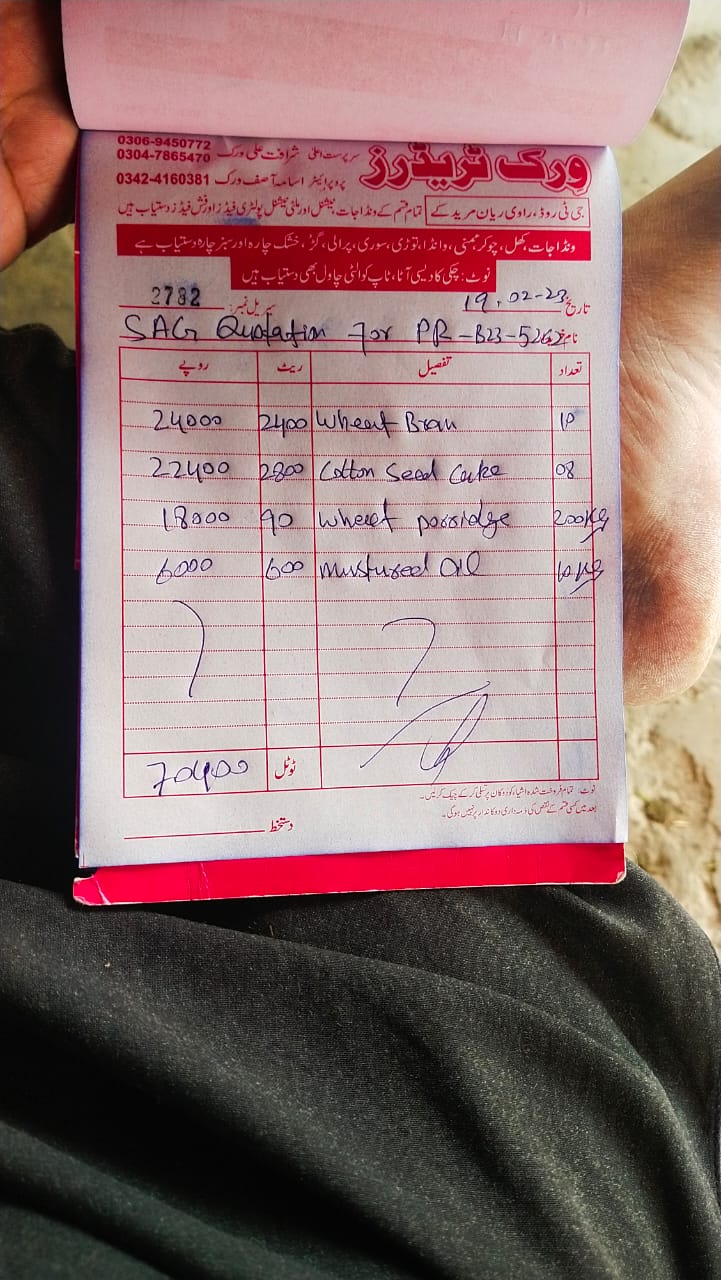 0306-9450772
0304-7865470
سرپرست اعلیٰ شرافت علی ورک
ورک ٹریڈرز
پروپرائیٹر اسامہ آصف ورک 0342-4160381
جی ٹی روڈ، راوی ریان مرید کے
تمام قسم کے ونڈا جات نیشنل اور ملٹی نیشنل پولٹری فیڈز اور فش فیڈز دستیاب ہیں
ونڈا جات، کھل، چوکر، مکئی، وانڈا، توڑی، سوری، پرالی، گڑ، خشک چارہ اور سبز چارہ دستیاب ہے
نوٹ: چکی کا دیسی آٹا، ٹاپ کوالٹی چاول بھی دستیاب ہیں
سیریل نمبر: 2782
تاریخ 19.02-23
SAG Quotation For PR-B23-5262
تعداد تفصیل ریٹ روپے
24000 2400 Wheat Bran 10
22400 2800 Cotton Seed Cake 08
18000 90 Wheat porridge 200Kg
6000 600 Mustured Oil 10 Kg
ٹوٹل 70400
نوٹ: تمام فروخت شدہ اشیاء کو دوکان پر تسلی کر کے چیک کر لیں۔
بعد میں کسی قسم کے نقص کی ذمہ داری دوکاندار پر نہیں ہوگی۔
دستخط